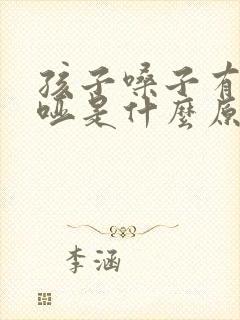 孩子嗓子有
哑是什麼原
李涵